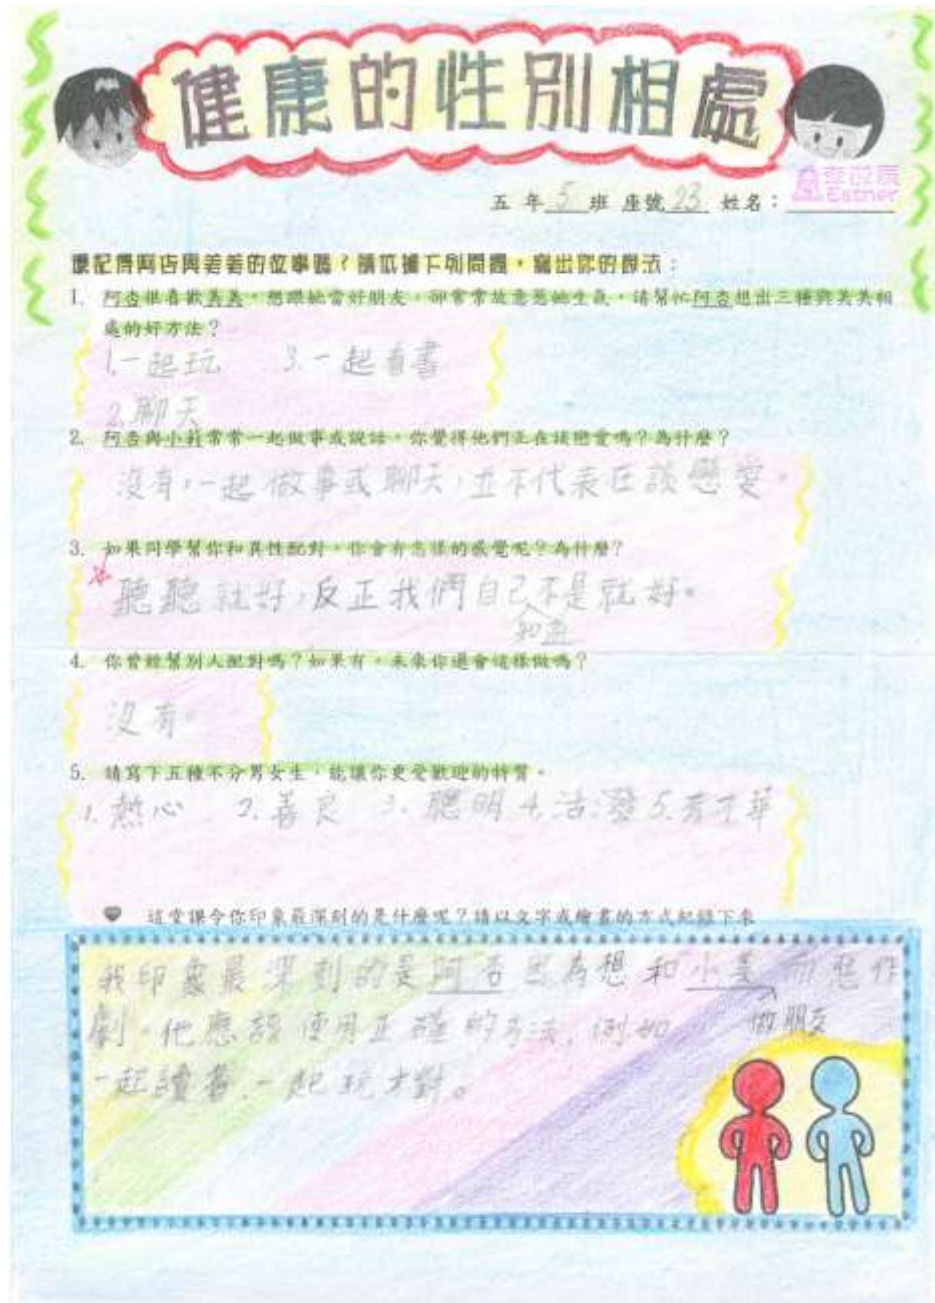 健康的性別相處
五 年 5 班 座號 23 姓名：
Esther
還記得阿杏與美美的故事嗎？請依據下列問題，寫出你的想法：
1. 阿杏很喜歡美美，想跟她當好朋友，卻常常故意惹她生氣，請幫忙阿杏想出三種與美美相
處的好方法？
1.一起玩 3.一起看書
2.聊天
2. 阿杏與小莉常常一起做事或說話，你覺得他們正在談戀愛嗎？為什麼？
沒有，一起做事或聊天，並不代表在談戀愛。
3. 如果同學幫你和異性配對，你會有怎樣的感覺呢？為什麼？
聽聽就好，反正我們自己不是就好。
知道
4. 你曾經幫別人配對嗎？如果有，未來你還會這樣做嗎？
沒有。
5. 請寫下五種不分男女生，能讓你更受歡迎的特質。
1.熱心 2.善良 3.聰明 4.活潑 5.有才華
這堂課令你印象最深刻的是什麼呢？請以文字或繪畫的方式紀錄下來
我印象最深刻的是阿杏因為想和小美而惡作
劇。他應該使用正確的方法，例如 做朋友
一起讀書、一起玩才對。